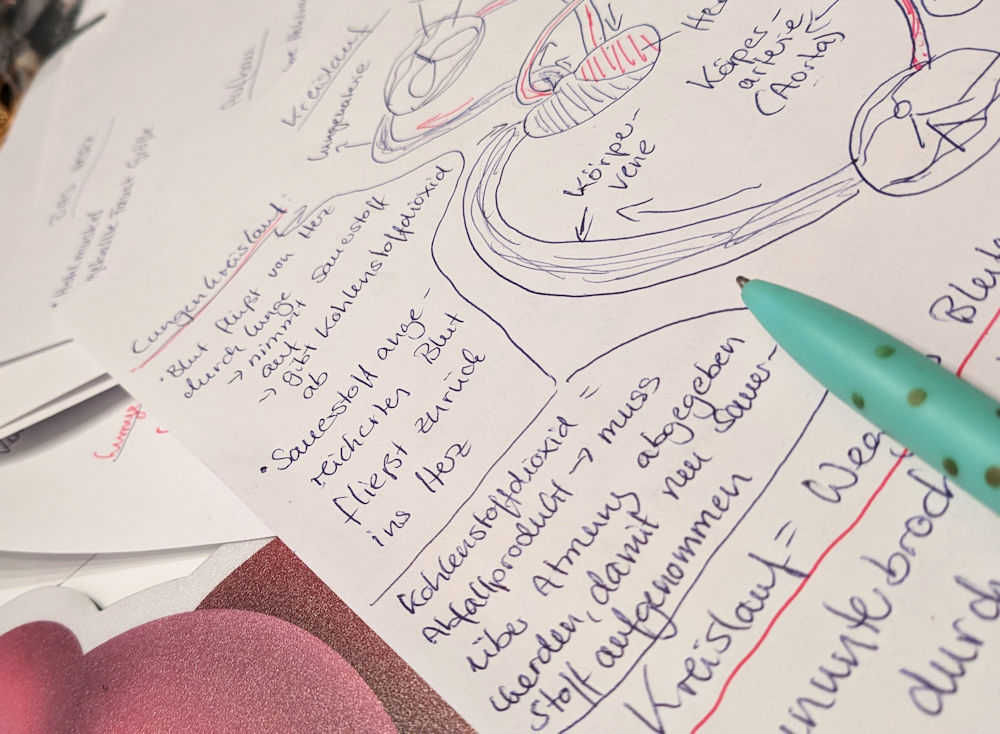 Das Herz
• Hohlmuskel
Aufbau
Kreislauf
Lungenvene
Körper-
arterie
(Aorta)
Körper-
vene
Lungenkreislauf:
• Blut fließt von Herz
durch Lunge
→ nimmt Sauerstoff
auf
→ gibt Kohlenstoffdioxid
ab
• Sauerstoff ange-
reichertes Blut
fließt zurück
ins Herz
Kohlenstoffdioxid =
Abfallprodukt → muss
über Atmung abgegeben
werden, damit neu Sauer-
stoff aufgenommen
Kreislauf = Weg
Blut
durch